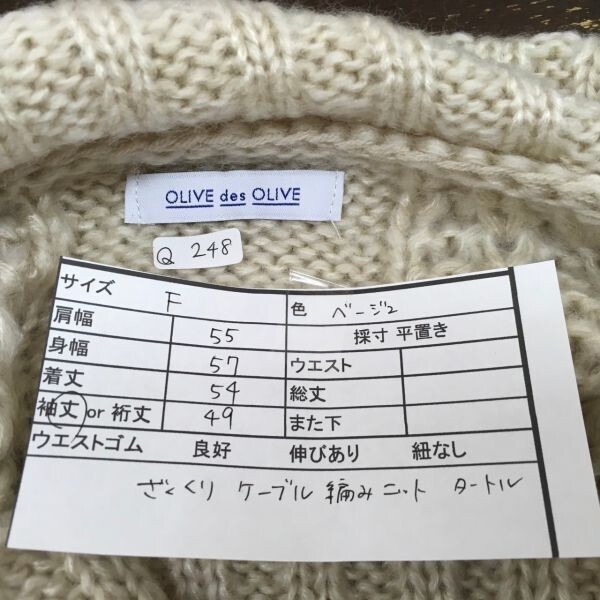 OLIVE des OLIVE
Q 248
サイズ F 色 ベージュ
肩幅 55 採寸 平置き
身幅 57 ウエスト
着丈 54 総丈
袖丈 or 裄丈 49 また下
ウエストゴム 良好 伸びあり 紐なし
ざくくり ケーブル 編みニット タートル